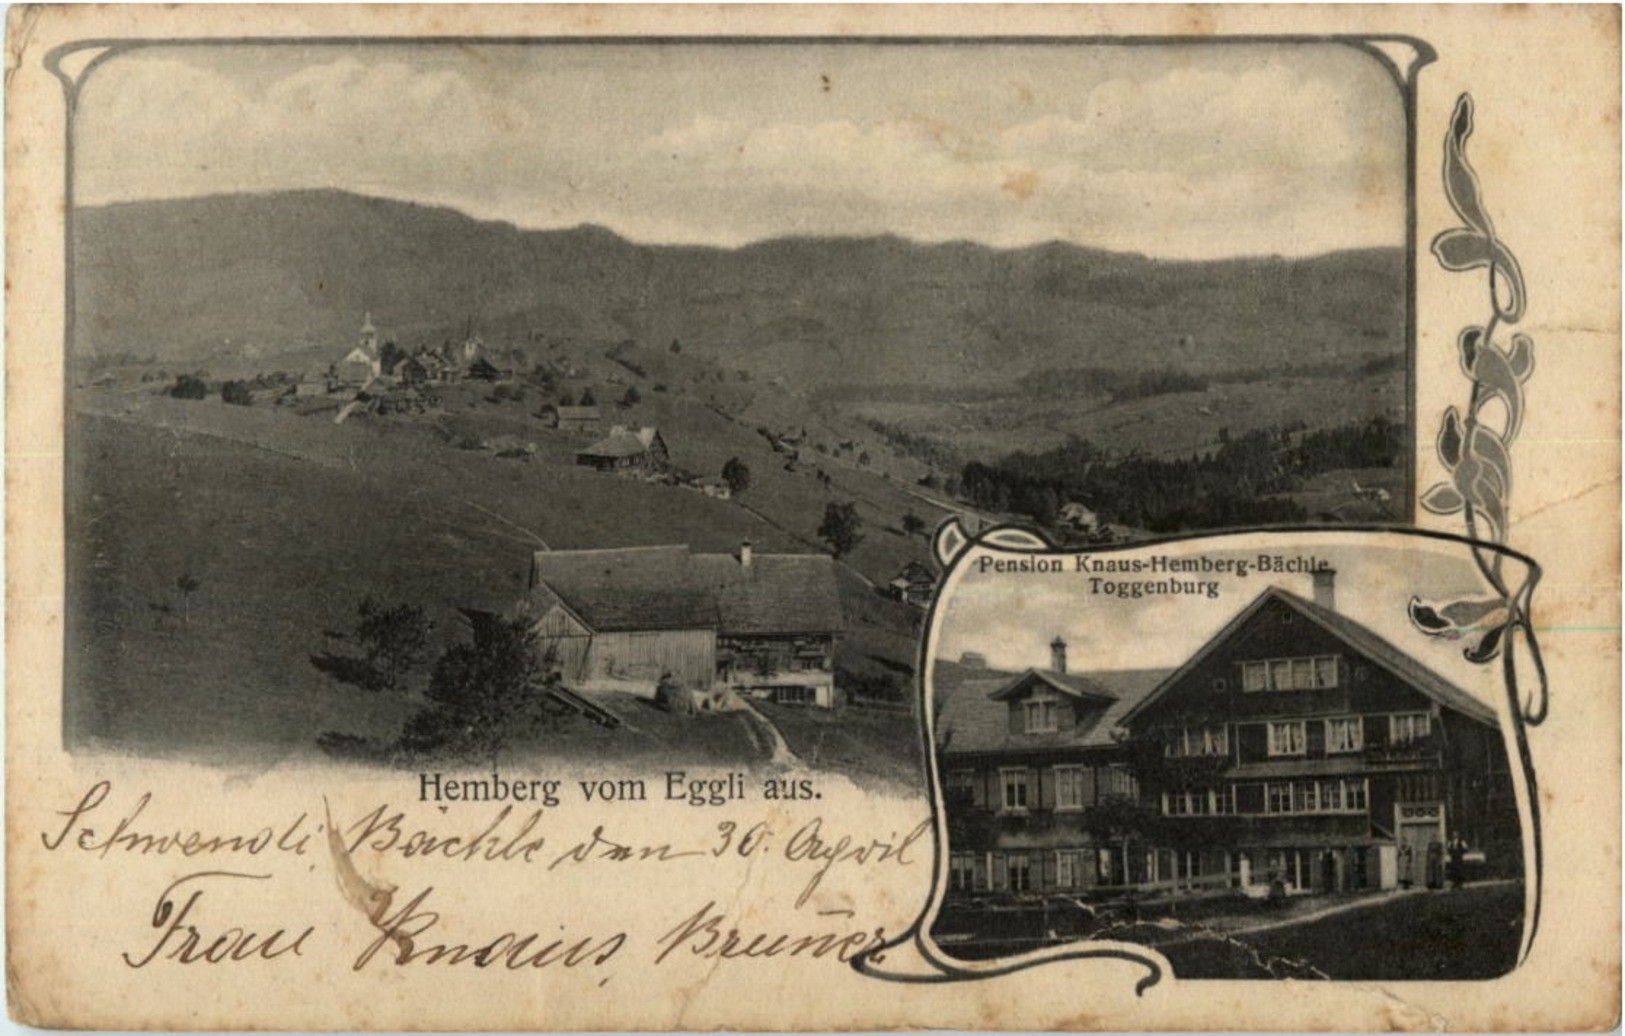 Pension Knaus-Hemberg-Bächle
Toggenburg
Hemberg vom Eggli aus.
Schwendi, Bächle den 30. April
Frau Knaus, Bruner